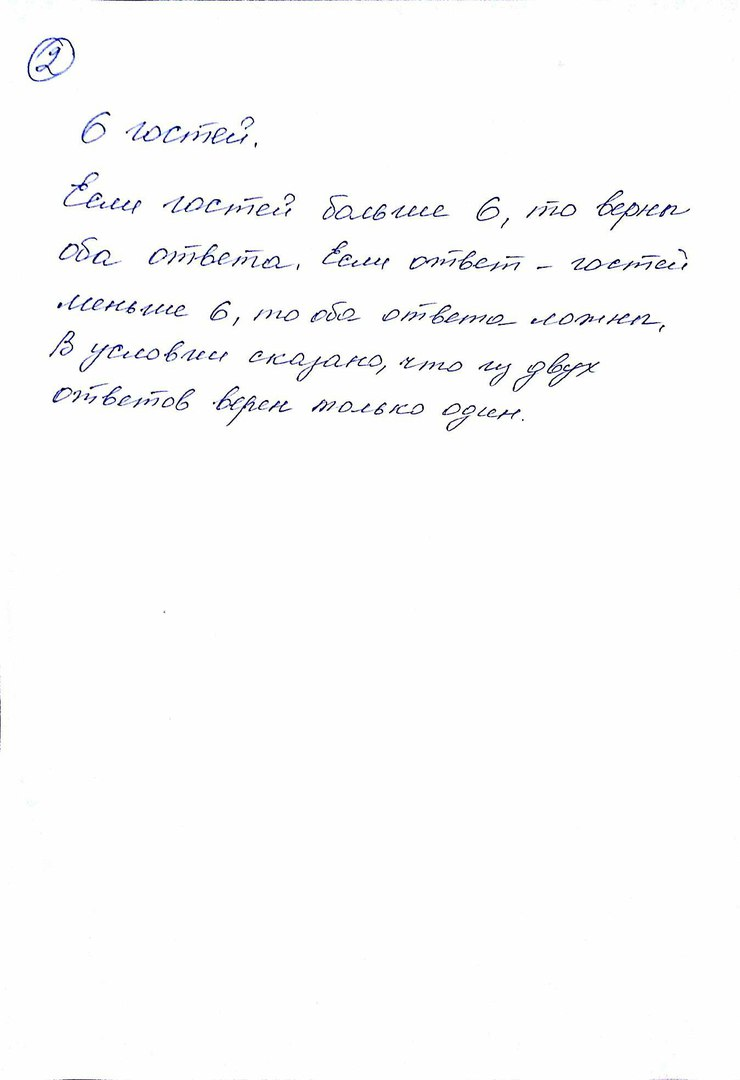 2
6 гостей.
Если гостей больше 6, то верны
оба ответа. Если ответ - гостей
меньше 6, то оба ответа ложны.
В условии сказано, что из двух
ответов верен только один.